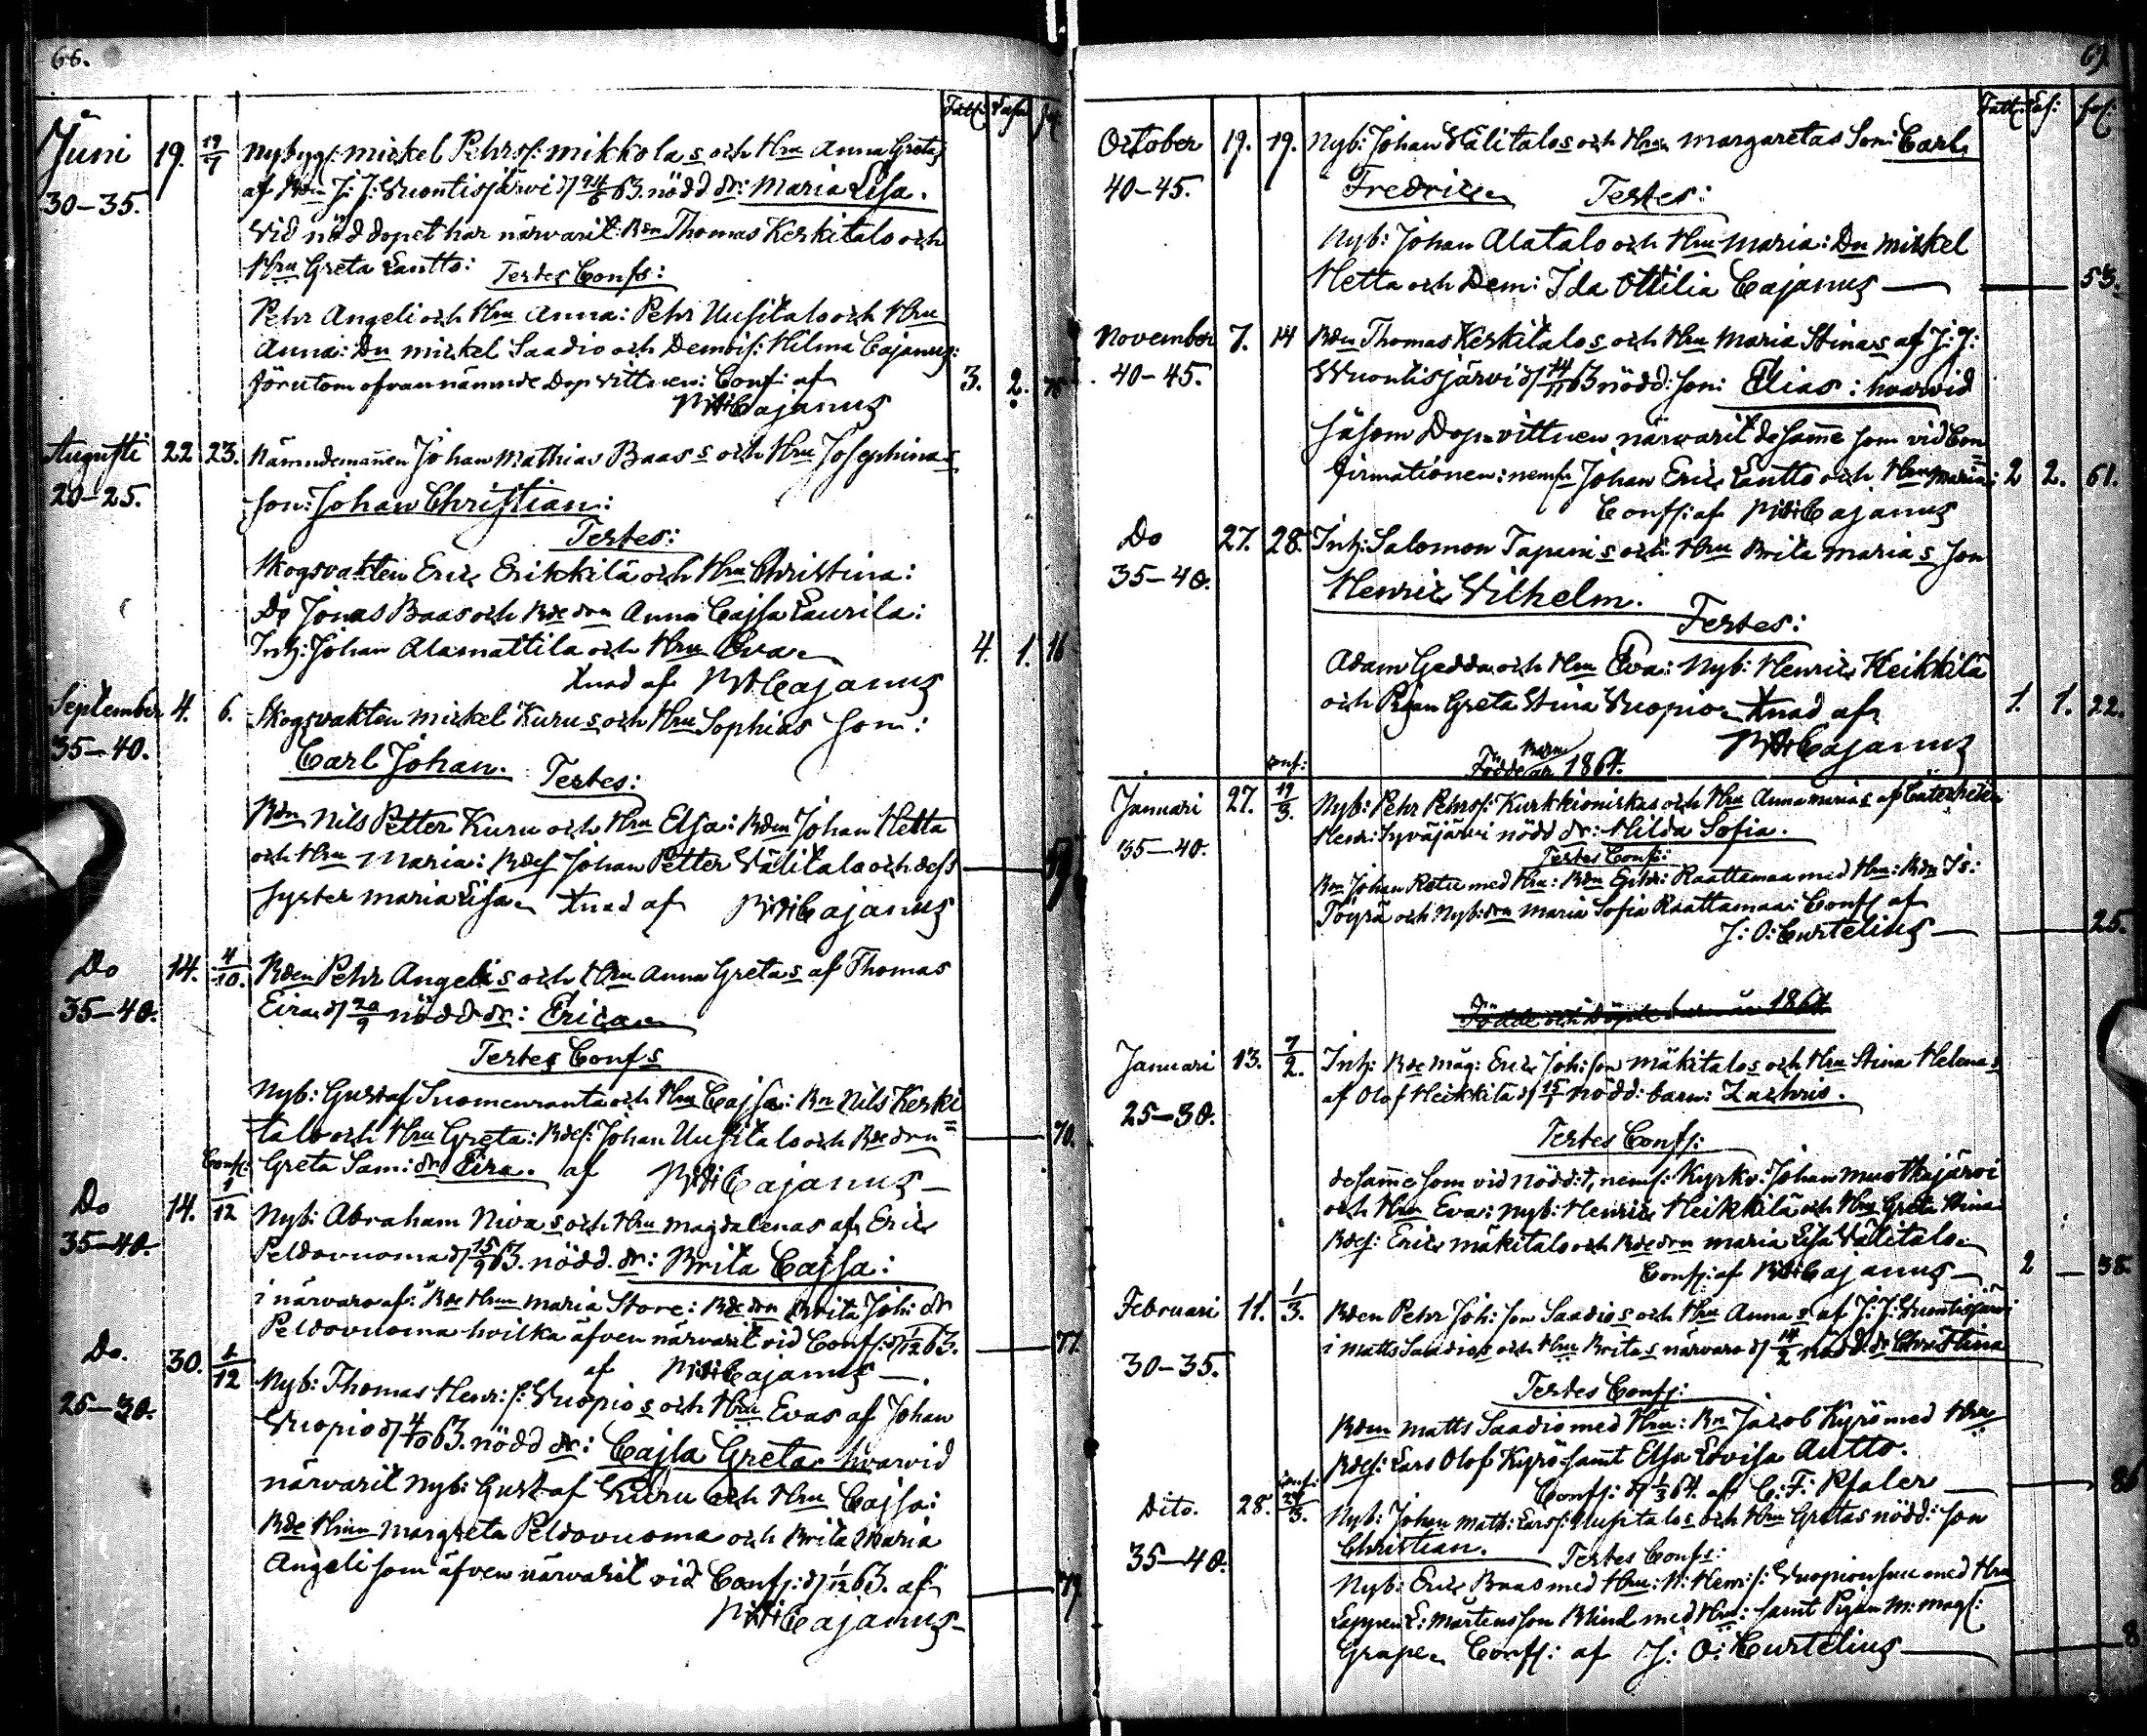 66.
Fatt: Läsn
Juni 19. 19/7 Nybygs: mickel Pehrs: mikkolas och Hru Anna Gretas
30-35. af Bdn J: J: Wuontisjärvi d/ 63. nödd dr: Maria Lisa.
Vid nöddopet har närvarit Bdn Thomas Keskitalo och
Hru Greta Lantto: Testes Confs:
Pehr Angeli och Hru Anna: Pehr Uusitalo och Hru
Anna: Dn mickel Saadio och Demois: Hilma Cajanus:
förutom ofvannämnde Dopvittnen: Conf: af 3. 2.
Cajanus
Augusti 22 23. Nämndemannen Johan Mathias Baass och Hru Josephinas
20-25. son: Johan Christian:
Testes:
Skogsvakten Eric Erikkilä och Hru Christina:
Do Jonas Baas och Bdedrn Anna Cajsa Laurila:
Inh: Johan Alamattila och Hru Eva 4. 1. 16
Xnad af Cajanus
September 4. 6. Skogsvakten mickel Kurus och Hru Sophias Son:
35-40. Carl Johan. Testes:
Bdn Nils Petter Kuru och Hru Elsa: Bdn Johan Hetta
och Hru Maria: Bdes Johan Petter Välitalo och dess
syster Maria Lisa Xnad af Cajanus
Do 14. 4/10. Bden Pehr Angelis och Hru Anna Gretas af Thomas
35-40. Eira d/ 20/9 nödd dr: Erica
Testes Confs
Nyb: Gustaf Suomenranta och Hru Cajsa: Bn Nils Keski=
talo och Hru Greta: Bdes: Johan Uusitalo och Bdedrn 70.
Conf: Greta Sam: dr Eira. af Cajanus
Do 14. 1/12 Nyb: Abraham Nivas och Hru magdalenas af Eric
35-40. Peldovuoma d/ 15/9 63. nödd. dr: Brita Cajsa:
i närvaro af: Bde Hrun Maria Store: Bdedrn Brita Joh: dr
Peldovuoma hvilka äfven närvarit vid Conf: d/ 1/12 63. 77.
af Cajanus
Do. 30. 1/12 Nyb: Thomas Henr: s: Vuopios och Hru Evas af Johan
25-30. Vuopio d/ 4/10 63. nödd dr: Cajsa Greta hvarvid
närvarit Nyb: Gustaf Kuru och Hru Cajsa:
Bde Hrun Margreta Peldovuoma och Brita Maria
Angeli som äfven närvarit vid Conf: d/ 1/12 63. af 79
Cajanus
Fatt: Läs: fol:
October 19. 19. Nyb: Johan Välitalos och Hrun Margaretas Son: Carl
40-45. Fredric Testes:
Nyb: Johan Alatalo och Hru Maria: Dn mickel
Hetta och Dem: Ida Ottilia Cajanus 53.
November 7. 14 Bden Thomas Keskitalos och Hru Maria Stinas af J: J:
40-45. Wuontisjärvi d/ 14/11 63 nödd: son: Elias: hvarvid
såsom Dopvittnen närvarit desamme som vid Con=
firmationen: neml: Johan Eric Lantto och Hru Maria: 2 2. 61.
Confs: af Cajanus
Do 27. 28. Inh: Salomon Tapanis och Hru Brita Marias Son
35-40. Henric Vilhelm. Testes:
Adam Gedda och Hru Eva: Nyb: Henric Heikkilä
och Pigan Greta Stina Vuopio Xnad af 1. 1. 22.
Cajanus
Födde Barn år 1864.
conf:
Januari 27. 19/3. Nyb: Pehr Pehrs: Kurkkioniskas och Hru Anna Marias af
35-40. Henr: Syväjärvi nödd dr: Hilda Sofia.
Testes Conf:
Bn Johan Rotu med Hru: Bdn Raattamaa med Hru: Bdn Is:
Töyrä och Nyb: drn Maria Sofia Raattamaa: Confs af
J: O: Curtelius 25.
Födde och Döpte barn år 1864
Januari 13. 7/2. Inh: Bde måg: Eric Joh: son Mäkitalos och Hru Stina Helenas
25-30. af Olof Heikkilä d/ 15/1 nödd: barn: Zachris.
Testes Confs:
desamme som vid nödd: t, neml: Kyrkv: Johan Muotkajärvi
och Hru Eva: Nyb: Henric Heikkilä och Hru Greta Stina
Bdes: Eric Mäkitalo och Bdedrn Maria Lisa Välitalo
Confs: af Cajanus 2 38.
Februari 11. 1/3. Bden Pehr Joh: son Saadios och Hru Annas af J: J: Wuontisjärvi
30-35. i Matts Saadios och Hru Britas närvaro d/ 14/2 nödd: dr Christina
Testes Confs:
Bden Matts Saadio med Hru: Bn Jacob Kyrö med Hru
Bdes: Lars Olof Kyrö samt Elsa Lovisa Autto.
Confs: d/ 1/3 64. af C: F: Pfaler 86
conf:
Dito. 28. Nyb: Johan Math: Larss: Uusitalos och Hru Gretas nödd: son
35-40. Christian. Testes Confs:
Nyb: Eric Baas med Hru: N: Henr: s: med Hru
Lappen L: Mårtensson Blind med Hru: samt Pigan M: Magl:
Grape Confs: af J: O: Curtelius